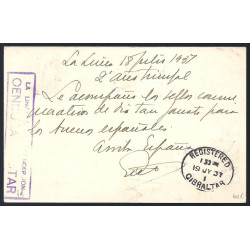 La Línea 18 Julio 1937
2º Año Triunfal
Le acompaño los sellos conme
morativos de día tan fausto para
los buenos españoles.
Arriba España
LA LINEA
REGISTERED
19 JY 37
GIBRALTAR